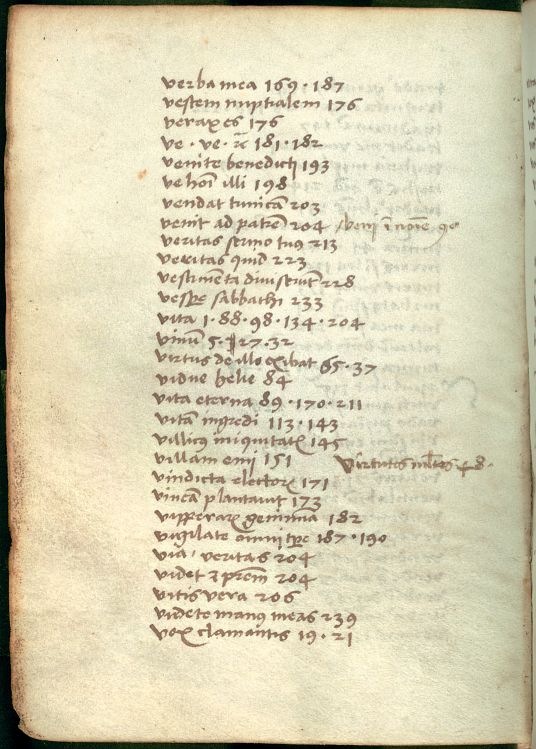 verba mea 169 · 187
vestem nuptialem 176
verax es 176
ve · ve · 181 · 182
venite benedicti 193
ve hoī illi 198
vendat tunicā 203
venit ad patrē 204
veritas sermo tuus 213
veritas quid 223
vestimenta diviserūt 228
vespe sabbathi 233
vita 1 · 88 · 98 · 134 · 204
vinū 5 · 27 · 32
virtus de illo exibat 65 · 37
vidue helie 84
vita eterna 89 · 170 · 211
vitā ingredi 113 · 143
villicus iniquitatis 145
villam emi 151 virtutes 48 ·
vindicta electorum 171
vineā plantavit 173
viperarum genimina 182
vigilate omni tpe 187 · 190
via, veritas 204
videt prēm 204
vitis vera 206
videte manus meas 239
vox clamantis 19 · 21